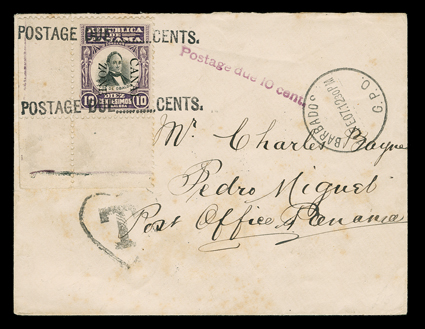 POSTAGE DUE CENTS.
REPUBLICA DE
PANAMA
CANAL
ZONE
10 DIEZ 10
CENTESIMOS
POSTAGE DUE CENTS.
Postage due 10 cent.
BARBADOS
G.P.O.
Mr. Charles
Pedro Miguel
Post Office Panama
T